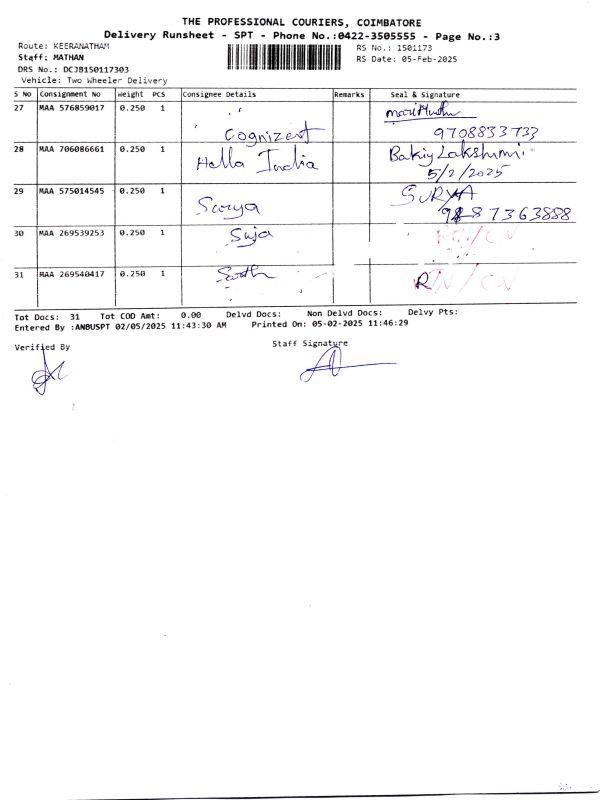 THE PROFESSIONAL COURIERS, COIMBATORE
Delivery Runsheet - SPT - Phone No.:0422-3505555 - Page No.:3
Route: KEERANATHAM
RS No.: 1501173
Staff: MATHAN
RS Date: 05-Feb-2025
DRS No.: DCJB150117303
Vehicle: Two Wheeler Delivery
S No Consignment No Weight PCS Consignee Details Remarks Seal & Signature
27 MAA 576859017 0.250 1
Cognizent 9708833733
28 MAA 706086661 0.250 1 Hella India Bakiy Lakshmi
5/2/2025
29 MAA 575014545 0.250 1 Surya SURYA
30 MAA 269539253 0.250 1 Suja
31 MAA 269540417 0.250 1
Tot Docs: 31 Tot COD Amt: 0.00 Delvd Docs: Non Delvd Docs: Delvy Pts:
Entered By :ANBUSPT 02/05/2025 11:43:30 AM Printed On: 05-02-2025 11:46:29
Verified By Staff Signature